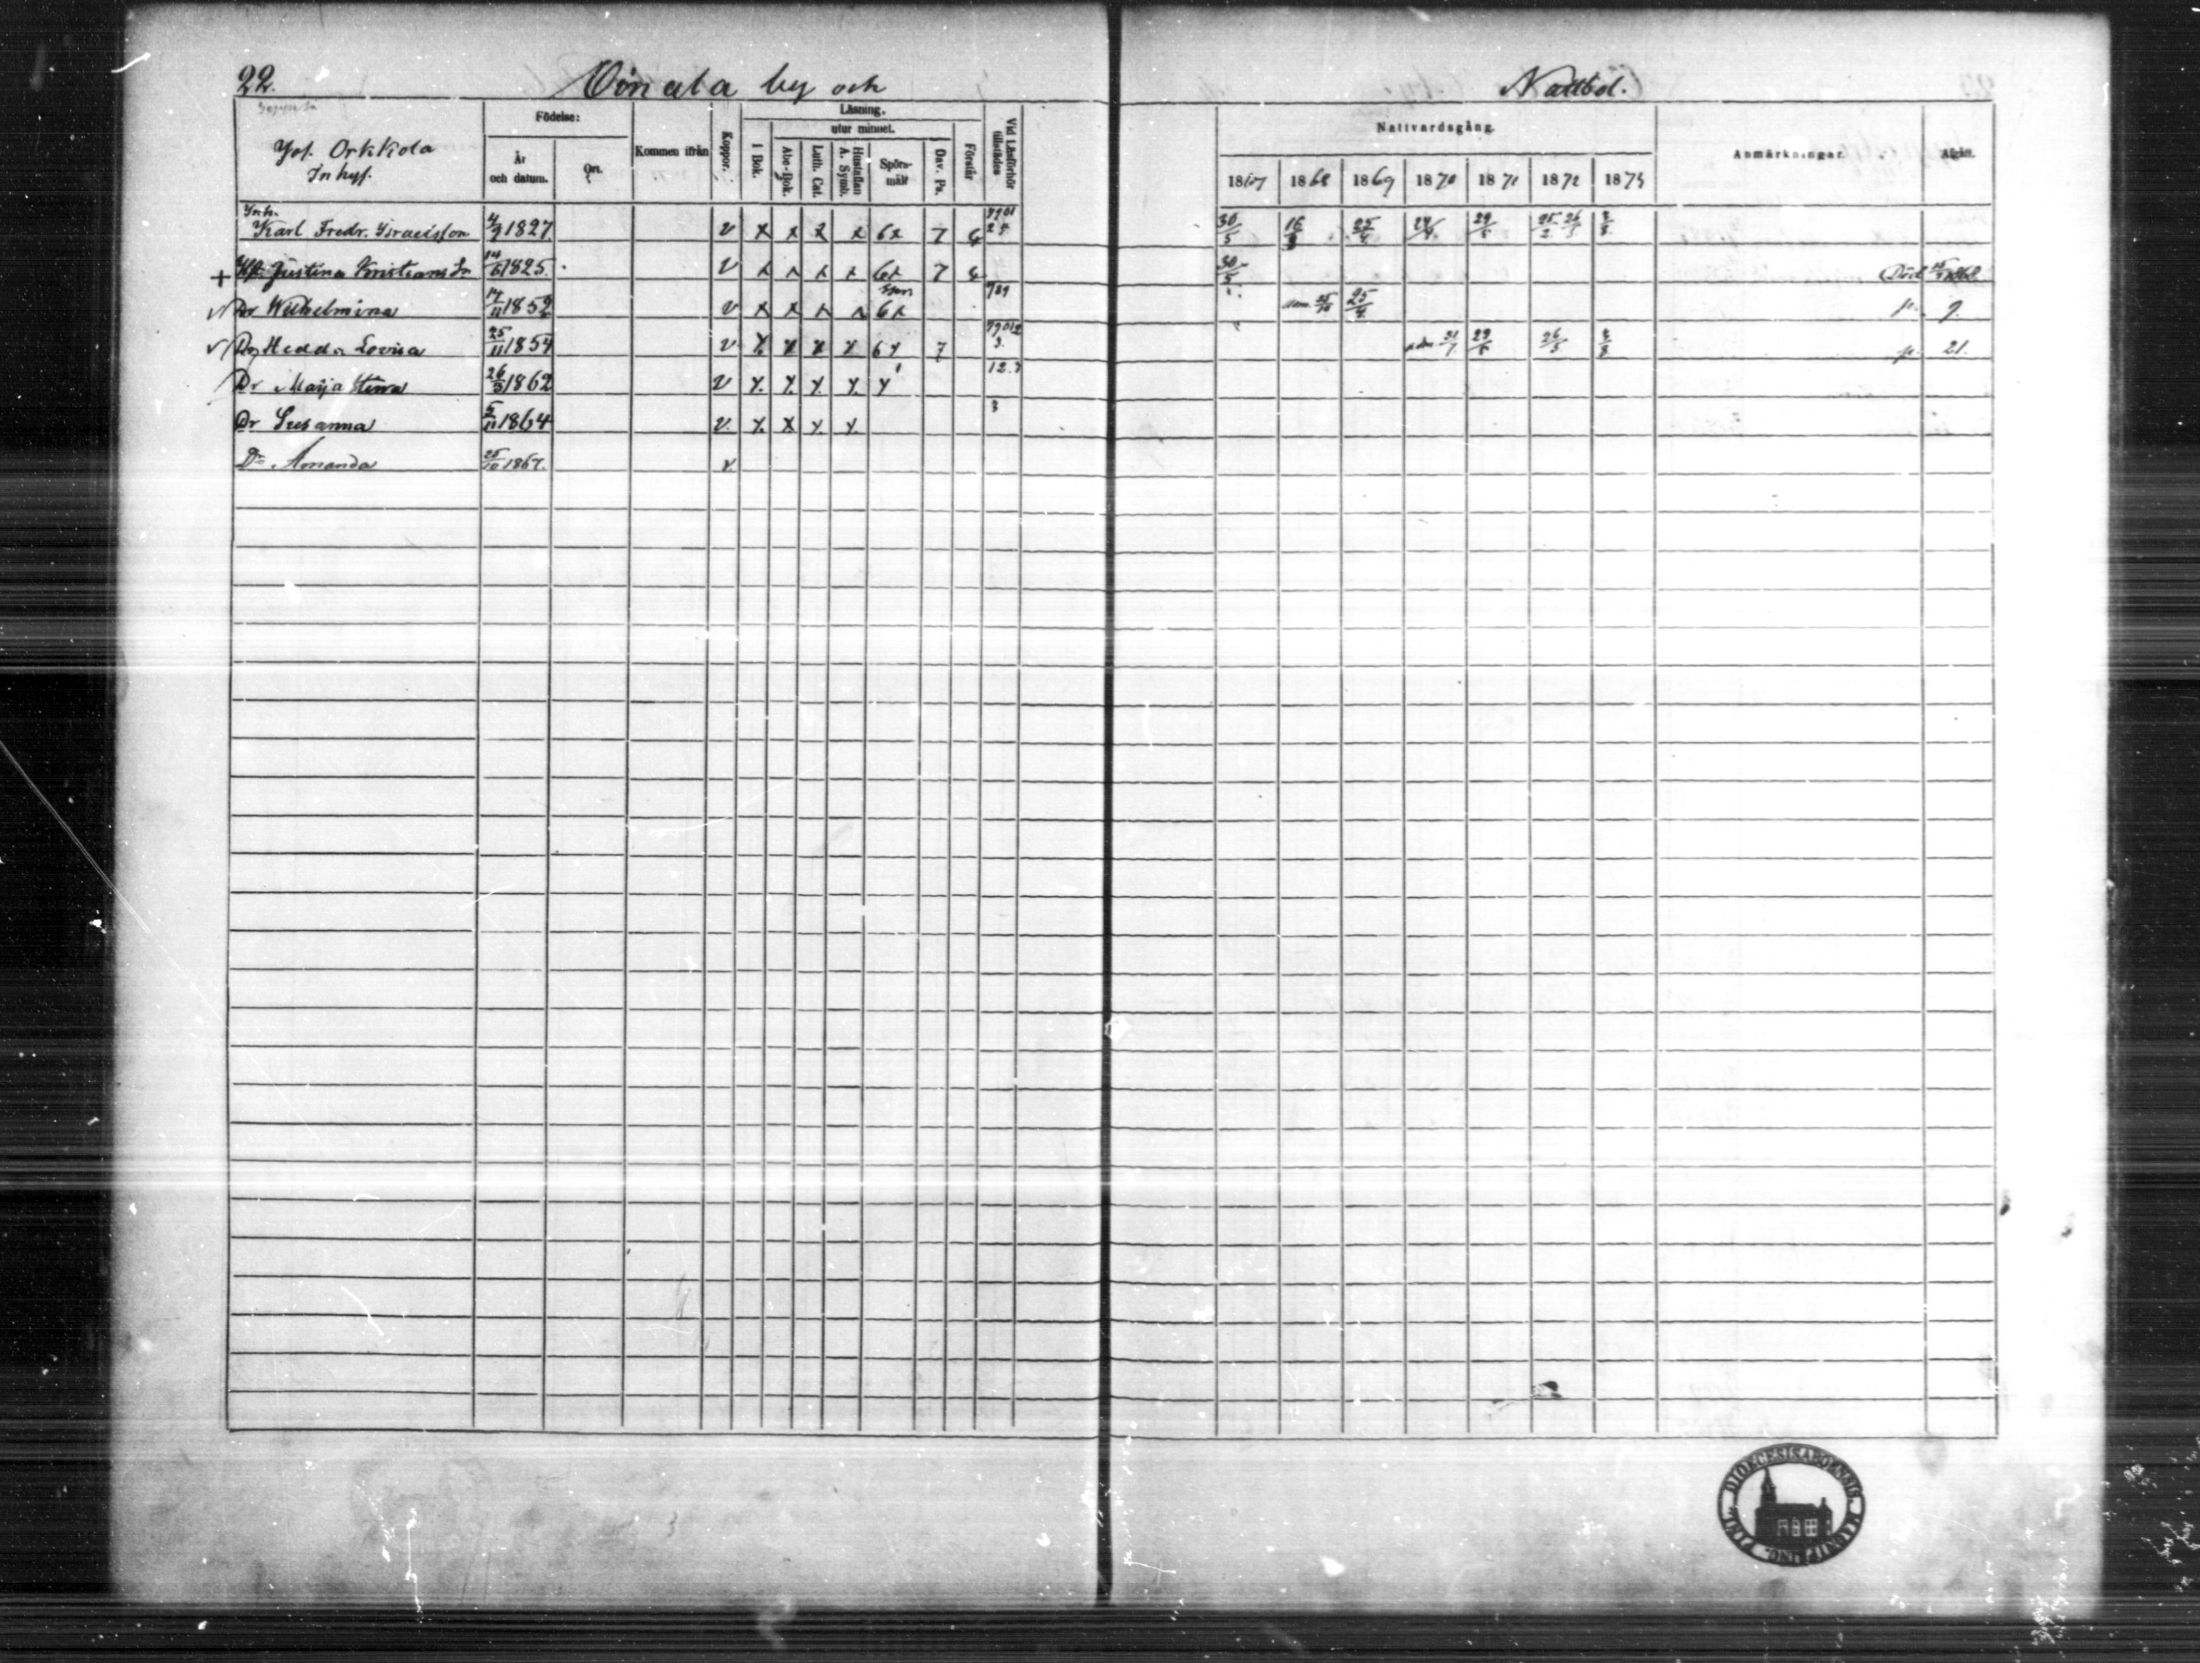 22. Oinala by och Nattbol.
Yof. Orkkola
Inhys.
Födelse:
År och datum.
Ort.
Kommen ifrån
Koppor.
Läsning.
I Bok.
utur minnet.
Abc-Bok.
Luth. Cat.
Hustaflan A. Symb.
Spörsmål
Dav. Ps.
Förstår
Vid Läsförhör tillstädes
Nattvardsgång.
1867 1868 1869 1870 1871 1872 1873
Anmärkningar.
Afgån.
Inh.
Karl Fredr. Israelsson 4/9 1827 v x x x x 6x 7 30/5 16/8 25/4
+ Justina Kristians Dr 14/6 1825 v x x x x 6x 7 30/5 Död
Dr Wilhelmina 14/11 1852 v x x x x 6x 789 25/4 p. 9
Dr Hedda Lovisa 25/11 1854 v x x x x 6x 7 p. 21.
Dr Maija Stina 26/3 1862 v x x x x x 12.3
Dr Susanna 5/11 1864 v x x x x 3
Dr Amanda 25/10 1867. v
DIOECESIS ABOENSIS